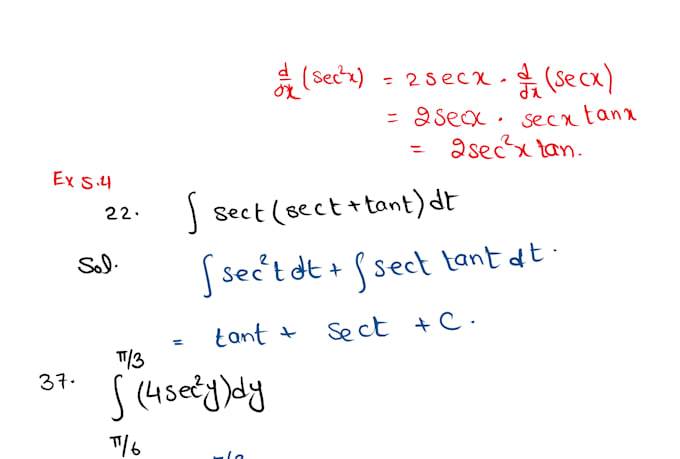 d/dx (sec²x) = 2 secx · d/dx (secx)
= 2secx · secx tanx
= 2sec²x tan.
Ex 5.4
22. ∫ sect (sect + tant) dt
Sol. ∫ sec²t dt + ∫ sect tant dt.
= tant + sect + C.
37. ∫_{π/6}^{π/3} (4sec²y)dy